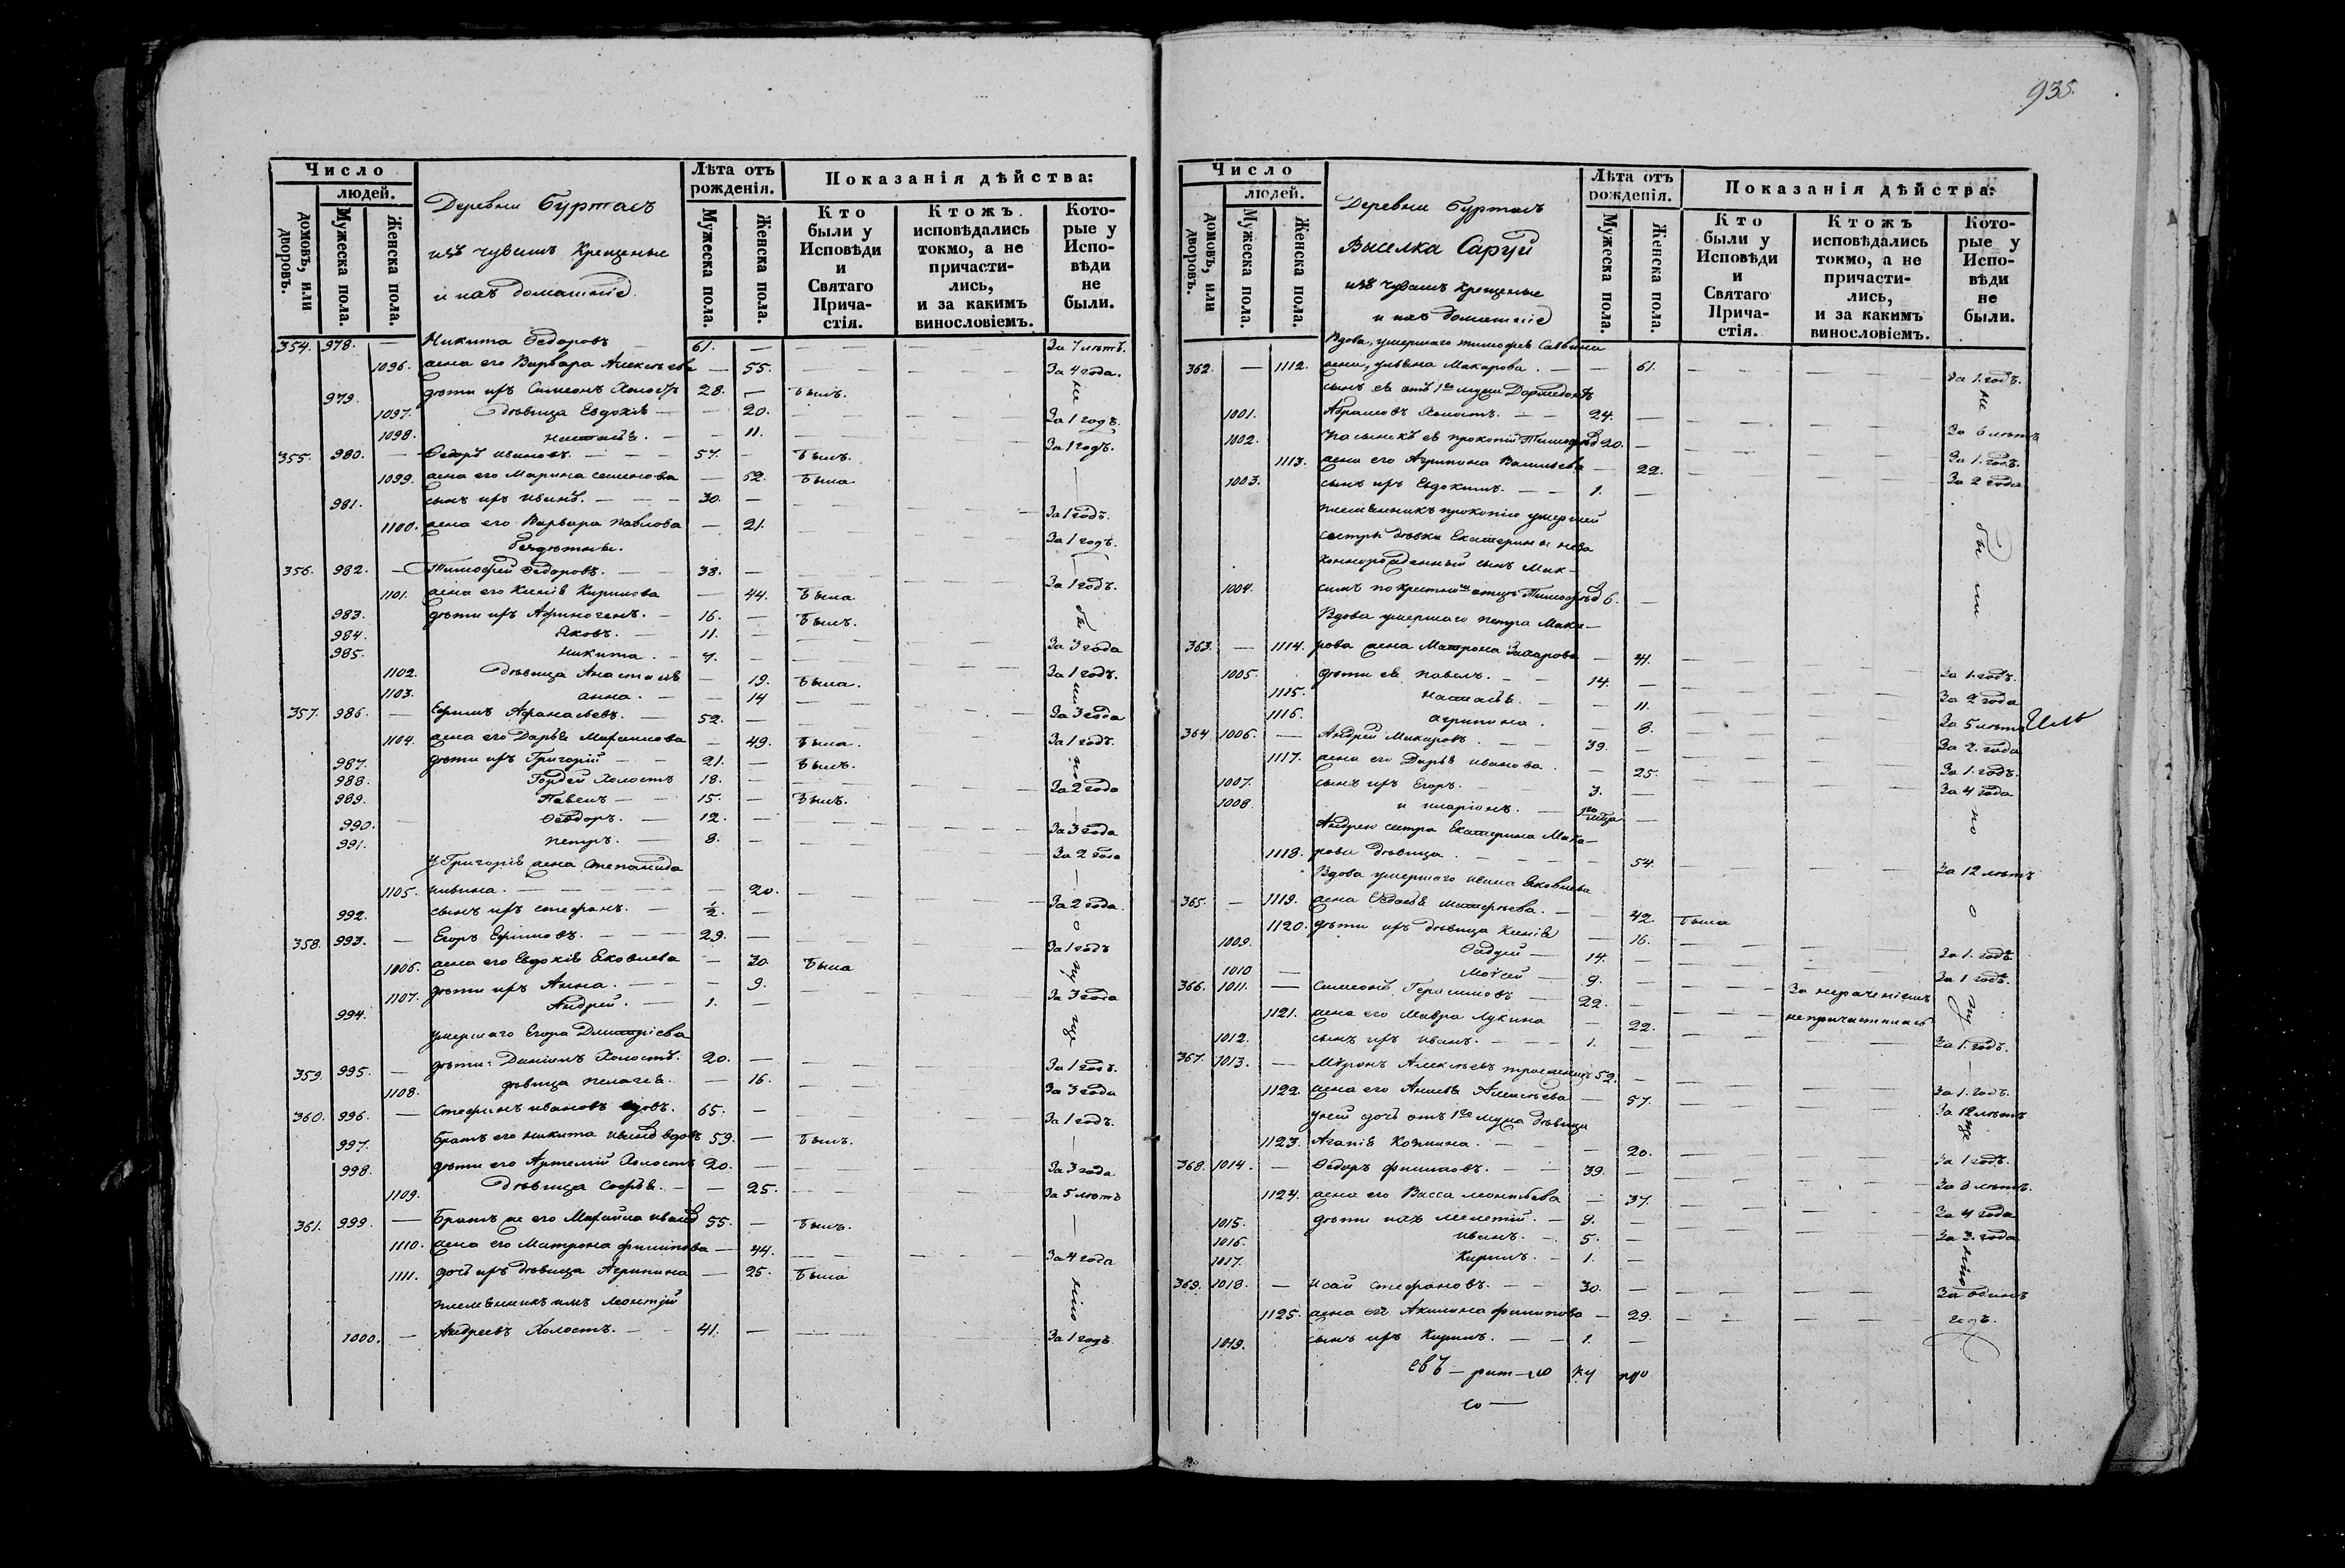 935.
Число
людей.
домовъ, или дворовъ.
Мужеска пола.
Женска пола.
Деревни Бурташъ
изъ чувашъ Крещеные
и ихъ домашніе.
Лѣта отъ рожденія.
Мужеска пола.
Женска пола.
Показанія дѣйства:
Кто были у Исповѣди и Святаго Прича-стія.
Ктожъ исповѣдались токмо, а не причасти-лись, и за какимъ винословіемъ.
Кото-рые у Испо-вѣди не были.
354. 978. — Никита Ѳедоровъ — 61. — За 7 лѣтъ.
1096. жена его Варвара Алексѣева — 55. — За 4 года.
979. дѣти ихъ Симеонъ Холостъ 28. — Былъ.
1097. дѣвица Евдокія — — 20. — За 1 годъ.
1098. Наталья. — — 11. — За 1 годъ.
355. 980. — Ѳедоръ Ивановъ. — 57. — Былъ.
1099. жена его Марина Семенова — 52. Была
981. сынъ ихъ Иванъ. — 30. — За 1 годъ.
1100. жена его Варвара Павлова — 21. — За 1 годъ.
бездѣтны.
356. 982. — Тимофей Ѳедоровъ. — 38. — За 1 годъ.
1101. жена его Ксенія Кирилова — 44. Была
983. дѣти ихъ Афиногенъ. — 16. — Былъ.
984. Яковъ. — 11. — За 3 года
985. Никита. — 7. — За 1 годъ.
1102. дѣвица Анастасія — 19. Была.
1103. Анна. — — 14 — За 3 года
357. 986. — Ефимъ Афанасьевъ. — 52. — За 1 годъ.
1104. жена его Дарья Максимова — 49. Была.
987. дѣти ихъ Григорій — 21. — Былъ.
988. Гордей Холостъ 18. — За 2 года
989. Павелъ — 15. — Былъ.
990. Ѳеодоръ. — 12. — За 3 года
991. Петръ. — 8. — За 2 года
У Григорія жена Степанида
1105. Ивана. — — 20. — За 2 года.
992. сынъ ихъ Стефанъ. — ½. —
358. 993. — Егоръ Ефимовъ. — 29. — За 1 годъ
1106. жена его Евдокія Яковлева — 30. Была
1107. дѣти ихъ Анна. — — 9. — За 3 года
994. Андрей. — 1. —
умершаго Егора Дмитріева
359. 995. — дѣти: Даніилъ Холостъ. 20. — За 1 годъ.
1108. дѣвица Пелагея. — 16. — За 3 года
360. 996. — Стефанъ Ивановъ вдовъ. 65. — За 1 годъ.
997. Братъ его Никита Ивановъ вдовъ 59. — Былъ.
998. дѣти его Артемій Холостъ 20. — За 3 года
1109. дѣвица Софья. — — 25. — За 5 лѣтъ
361. 999. — Братъ же его Михайла Ивановъ 55. — Былъ.
1110. жена его Матрона Филипова — 44. — За 4 года
1111. дочь ихъ дѣвица Агрипина — 25. Была
племянникъ имъ Леонтій
1000. — Андреевъ Холостъ. — 41. — За 1 годъ.
Число
людей.
домовъ, или дворовъ.
Мужеска пола.
Женска пола.
Деревни Бурташъ
Выселка Саруй
изъ чувашъ Крещеные
и ихъ домашніе
Лѣта отъ рожденія.
Мужеска пола.
Женска пола.
Показанія дѣйства:
Кто были у Исповѣди и Святаго Прича-стія.
Ктожъ исповѣдались токмо, а не причасти-лись, и за какимъ винословіемъ.
Кото-рые у Испо-вѣди не были.
Вдова, умершаго Тимофея Саввина
362. — 1112. жена, Ульяна Макарова. — — 61. — За 1. годъ.
сынъ ея отъ 1го мужа Дормедонтъ
1001. Абрамовъ Холостъ. — 24. — За 6 лѣтъ
1002. Пасынокъ ея Прокопій Тимофѣевъ 20. — За 1. годъ.
1113. жена его Агрипина Васильева — 22. — За 2 года
1003. сынъ ихъ Евдокимъ. — 1. —
племянникъ Прокопію умершей
сестры дѣвки Екатерины неза
коннорожденный сынъ Мак—
1004. симъ по крестному отцу Тимофѣевъ 6. —
Вдова умершаго Петра Мака—
363. — 1114. рова жена Матрона Захарова — 41. — За 1. годъ.
1005. дѣти ея Павелъ. — 14. — За 2 года
1115. Наталья. — — 11. — За 5 лѣтъ
1116. Агрипина. — 8. — За 2. года
364 1006. — Андрей Макаровъ. — 39. — За 1. годъ.
1117. жена его Дарья Иванова. — 25. — За 4 года
1007. сынъ ихъ Егоръ. — 3. —
1008. Иларіонъ. —
Андрею сестра Екатерина Мака—
1118. рова дѣвица. — — 54. — За 12 лѣтъ
Вдова умершаго Ивана Яковлева
365. — 1119. жена Ѳедосья Матвѣева. — 42. Была
1120. дѣти ихъ дѣвица Ксенія — 16. — За 1. годъ.
1009. Ѳаддей — 14. — За 1 годъ.
1010 — Моѵсей — 9. —
366. 1011. — Симеонъ Герасимовъ — 22. — За нераченіемъ
1121. жена его Мавра Лукина — 22. — не причастилась
1012. сынъ ихъ Иванъ. — 1. — За 1. годъ.
367. 1013. — Миронъ Алексѣевъ троеженецъ 52. — За 1. годъ.
1122. жена его Анисья Алексѣева — 57. — За 12 лѣтъ
у ней дочь отъ 1го мужа дѣвица
1123. Агапія Козмина. — — 20. — За 1 годъ.
368. 1014. — Ѳедоръ Филиповъ. — 39. — За 8 лѣтъ.
1124. жена его Васса Леонтьева — 37. — За 4 года
1015. дѣти ихъ Мелетій. — 9. — За 3. года
1016. Иванъ. — 5. —
1017. Кирилъ. — 1. —
369. 1018. — Исай Стефановъ. — 30. — За одинъ
1125. жена его Акилина Филипова — 29. — годъ.
1019. сынъ ихъ Кирилъ. — 1. —